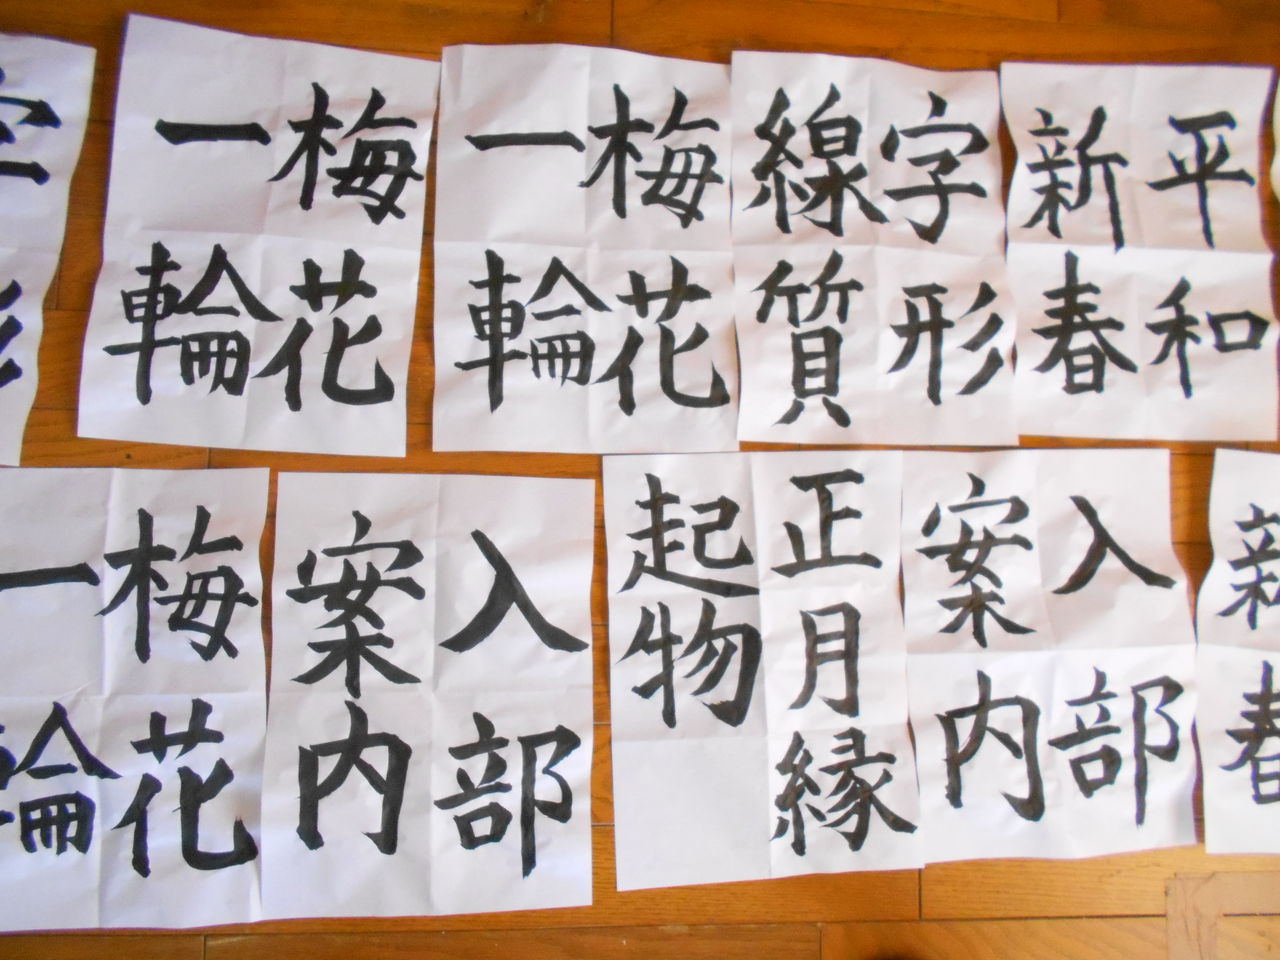 梅花
一輪
梅花
一輪
字形
線質
平和
新春
梅花
一輪
入部
案内
正月縁
起物
入部
案内
新春